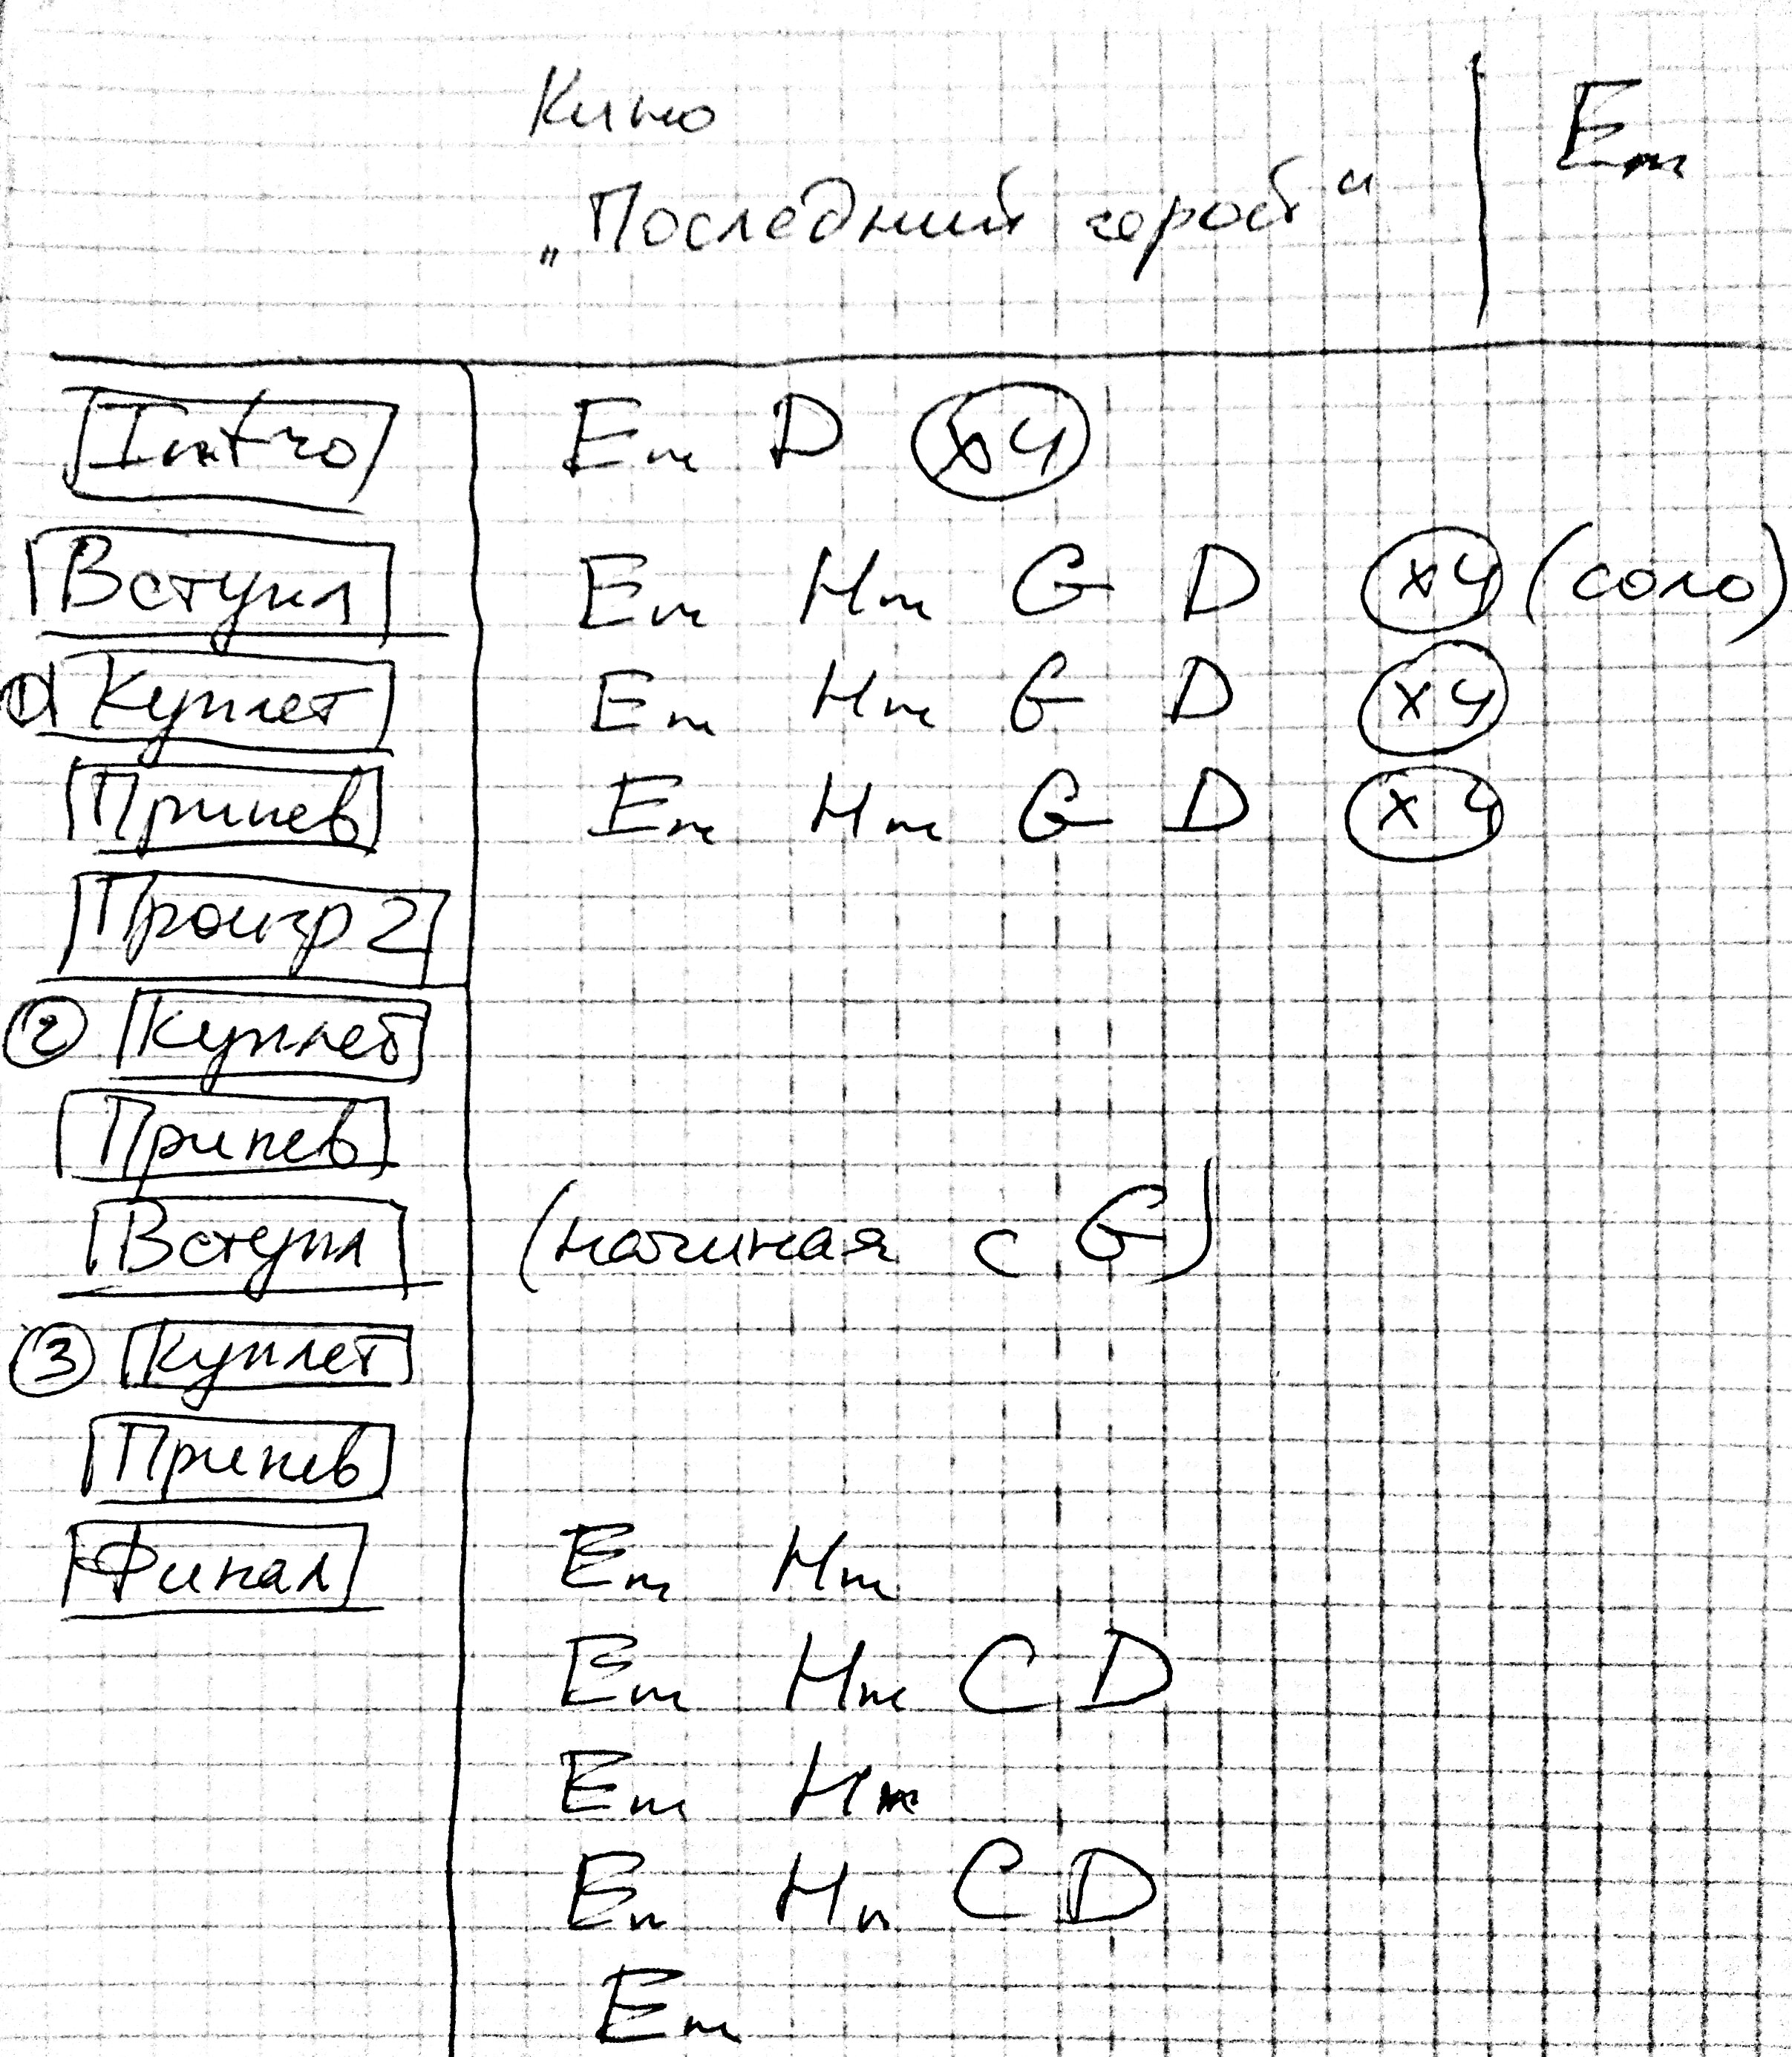 Кино
„Последний герой“ Em
Intro Em D x4
Вступл Em Hm G D x4 (соло)
1 Куплет Em Hm G D x4
Припев Em Hm G D x4
Проигр 2
2 Куплет
Припев
Вступл (начиная с G)
3 Куплет
Припев
Финал Em Hm
Em Hm C D
Em Hm
Em Hm C D
Em